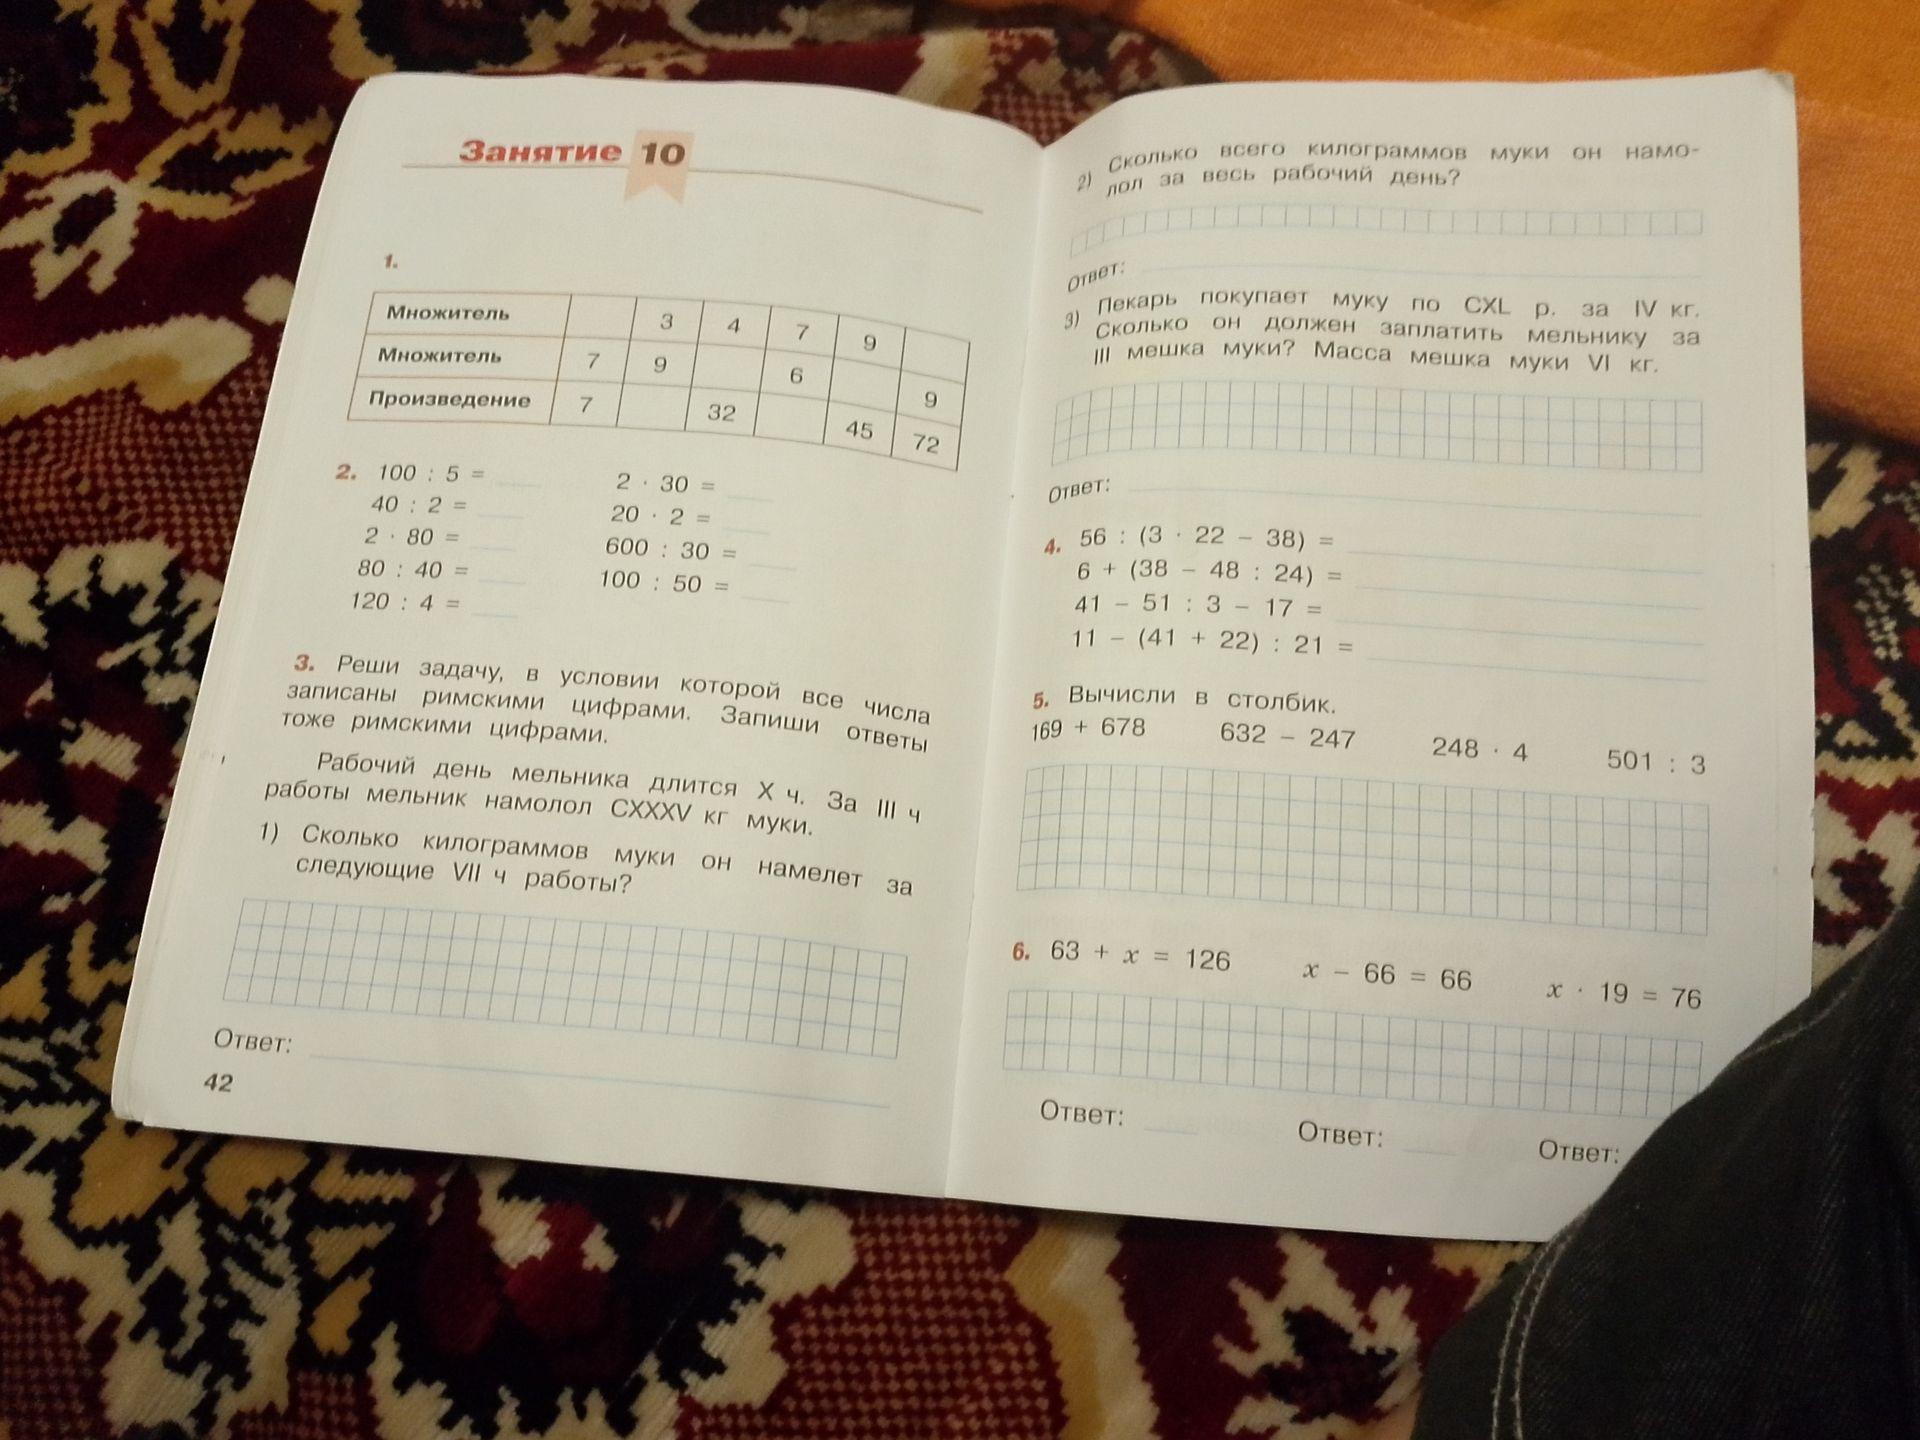 Занятие 10
1.
Множитель 3 4 7 9
Множитель 7 9 6 9
Произведение 7 32 45 72
2. 100 : 5 = 2 · 30 =
40 : 2 = 20 · 2 =
2 · 80 = 600 : 30 =
80 : 40 = 100 : 50 =
120 : 4 =
3. Реши задачу, в условии которой все числа
записаны римскими цифрами. Запиши ответы
тоже римскими цифрами.
Рабочий день мельника длится X ч. За III ч
работы мельник намолол CXXXV кг муки.
1) Сколько килограммов муки он намелет за
следующие VII ч работы?
Ответ:
42
2) Сколько всего килограммов муки он намо-
лол за весь рабочий день?
Ответ:
3) Пекарь покупает муку по CXL р. за IV кг.
Сколько он должен заплатить мельнику за
III мешка муки? Масса мешка муки VI кг.
Ответ:
4. 56 : (3 · 22 – 38) =
6 + (38 – 48 : 24) =
41 – 51 : 3 – 17 =
11 – (41 + 22) : 21 =
5. Вычисли в столбик.
169 + 678 632 – 247 248 · 4 501 : 3
6. 63 + x = 126 x – 66 = 66 x · 19 = 76
Ответ: Ответ: Ответ: